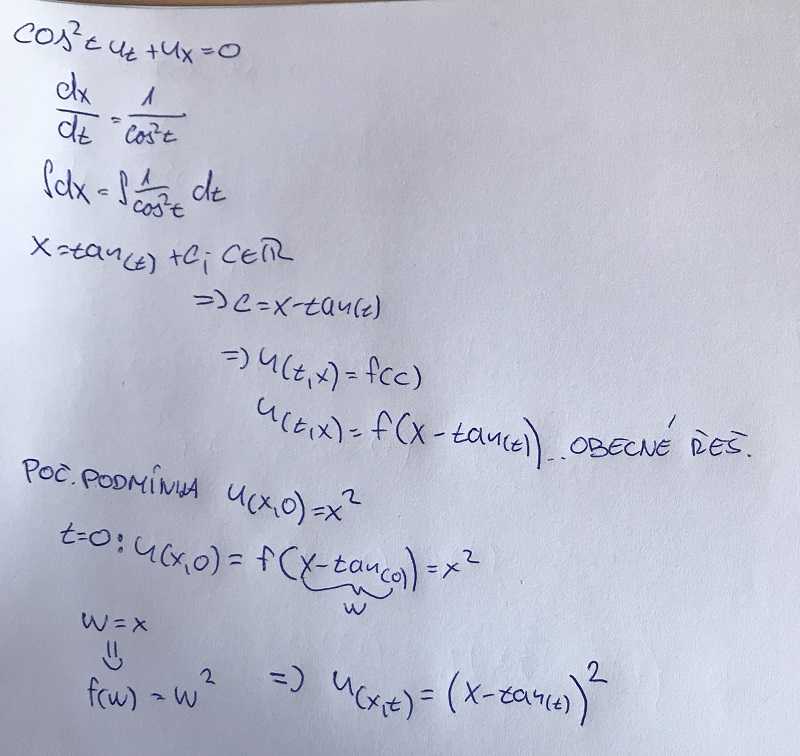 cos²t uₜ + uₓ = 0
dx/dt = 1/cos²t
∫dx = ∫ 1/cos²t dt
x = tan(t) + C; C∈ℝ
=> C = x - tan(t)
=> u(t,x) = f(c)
u(t,x) = f(x - tan(t)) ... OBECNÉ ŘEŠ.
POČ. PODMÍNKA u(x,0) = x²
t=0: u(x,0) = f(x - tan(0)) = x²
w
w = x
⇓
f(w) = w² => u(x,t) = (x - tan(t))²